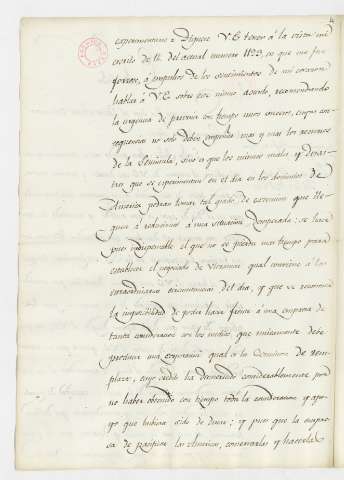 4
experimentan: Dígnese V.E. tener á la vista mi
escrito de 14 del actual numero 1199, en que me fue
forzoso, á impulsos de los sentimientos de mi corazon
hablar á V.E. sobre este mismo asunto, recomendando
la urgencia de prevenir con tiempo unos sucesos, cuyas con
sequencias no solo deben empeorar mas y mas los recursos
de la Peninsula, sino es que los mismos males y desas-
tres que se experimentan en el dia en los dominios de
America podran tomar tal grado de extension que lle-
guen á reducirlos á una situacion desesperada: se hace
pues indispensable el que no se pierda mas tiempo para
establecer el negociado de Ultramar qual conviene á las
extraordinarias circunstancias del dia, y que se reconozca
la imposibilidad de poder hacer frente á una empresa de
tanta consideracion sin los medios, que unicamente debe
producir una corporacion qual es la Comision de reem-
plazos, cuyo credito ha decaido considerablemente por
no haber obtenido con tiempo toda la consideracion y apo-
yo que hubiera sido de desear; y pues que la empre-
sa de pacificar las Americas, conservarlas y hacerlas